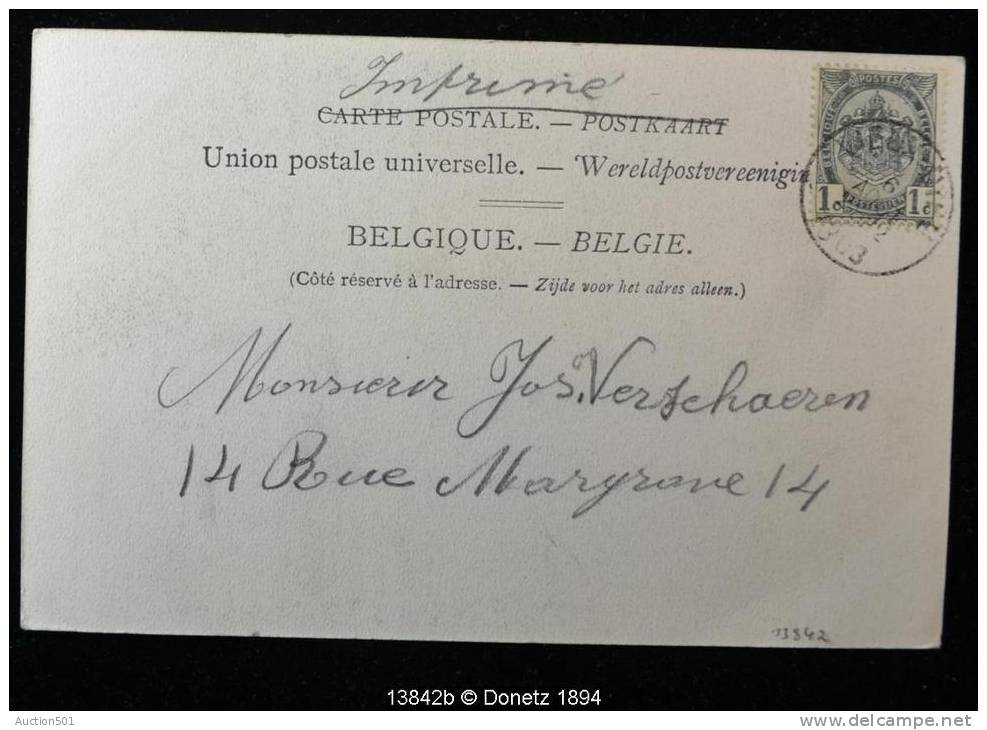 Imprimé
CARTE POSTALE. — POSTKAART
Union postale universelle. — Wereldpostvereenigin
BELGIQUE. — BELGIE.
(Côté réservé à l'adresse. — Zijde voor het adres alleen.)
POSTES
BELGIQUE
1c 1c
1903
Monsieur Jos. Verschaeren
14 Rue Margrave 14
13842
13842b © Donetz 1894
Auction501
www.delcampe.net